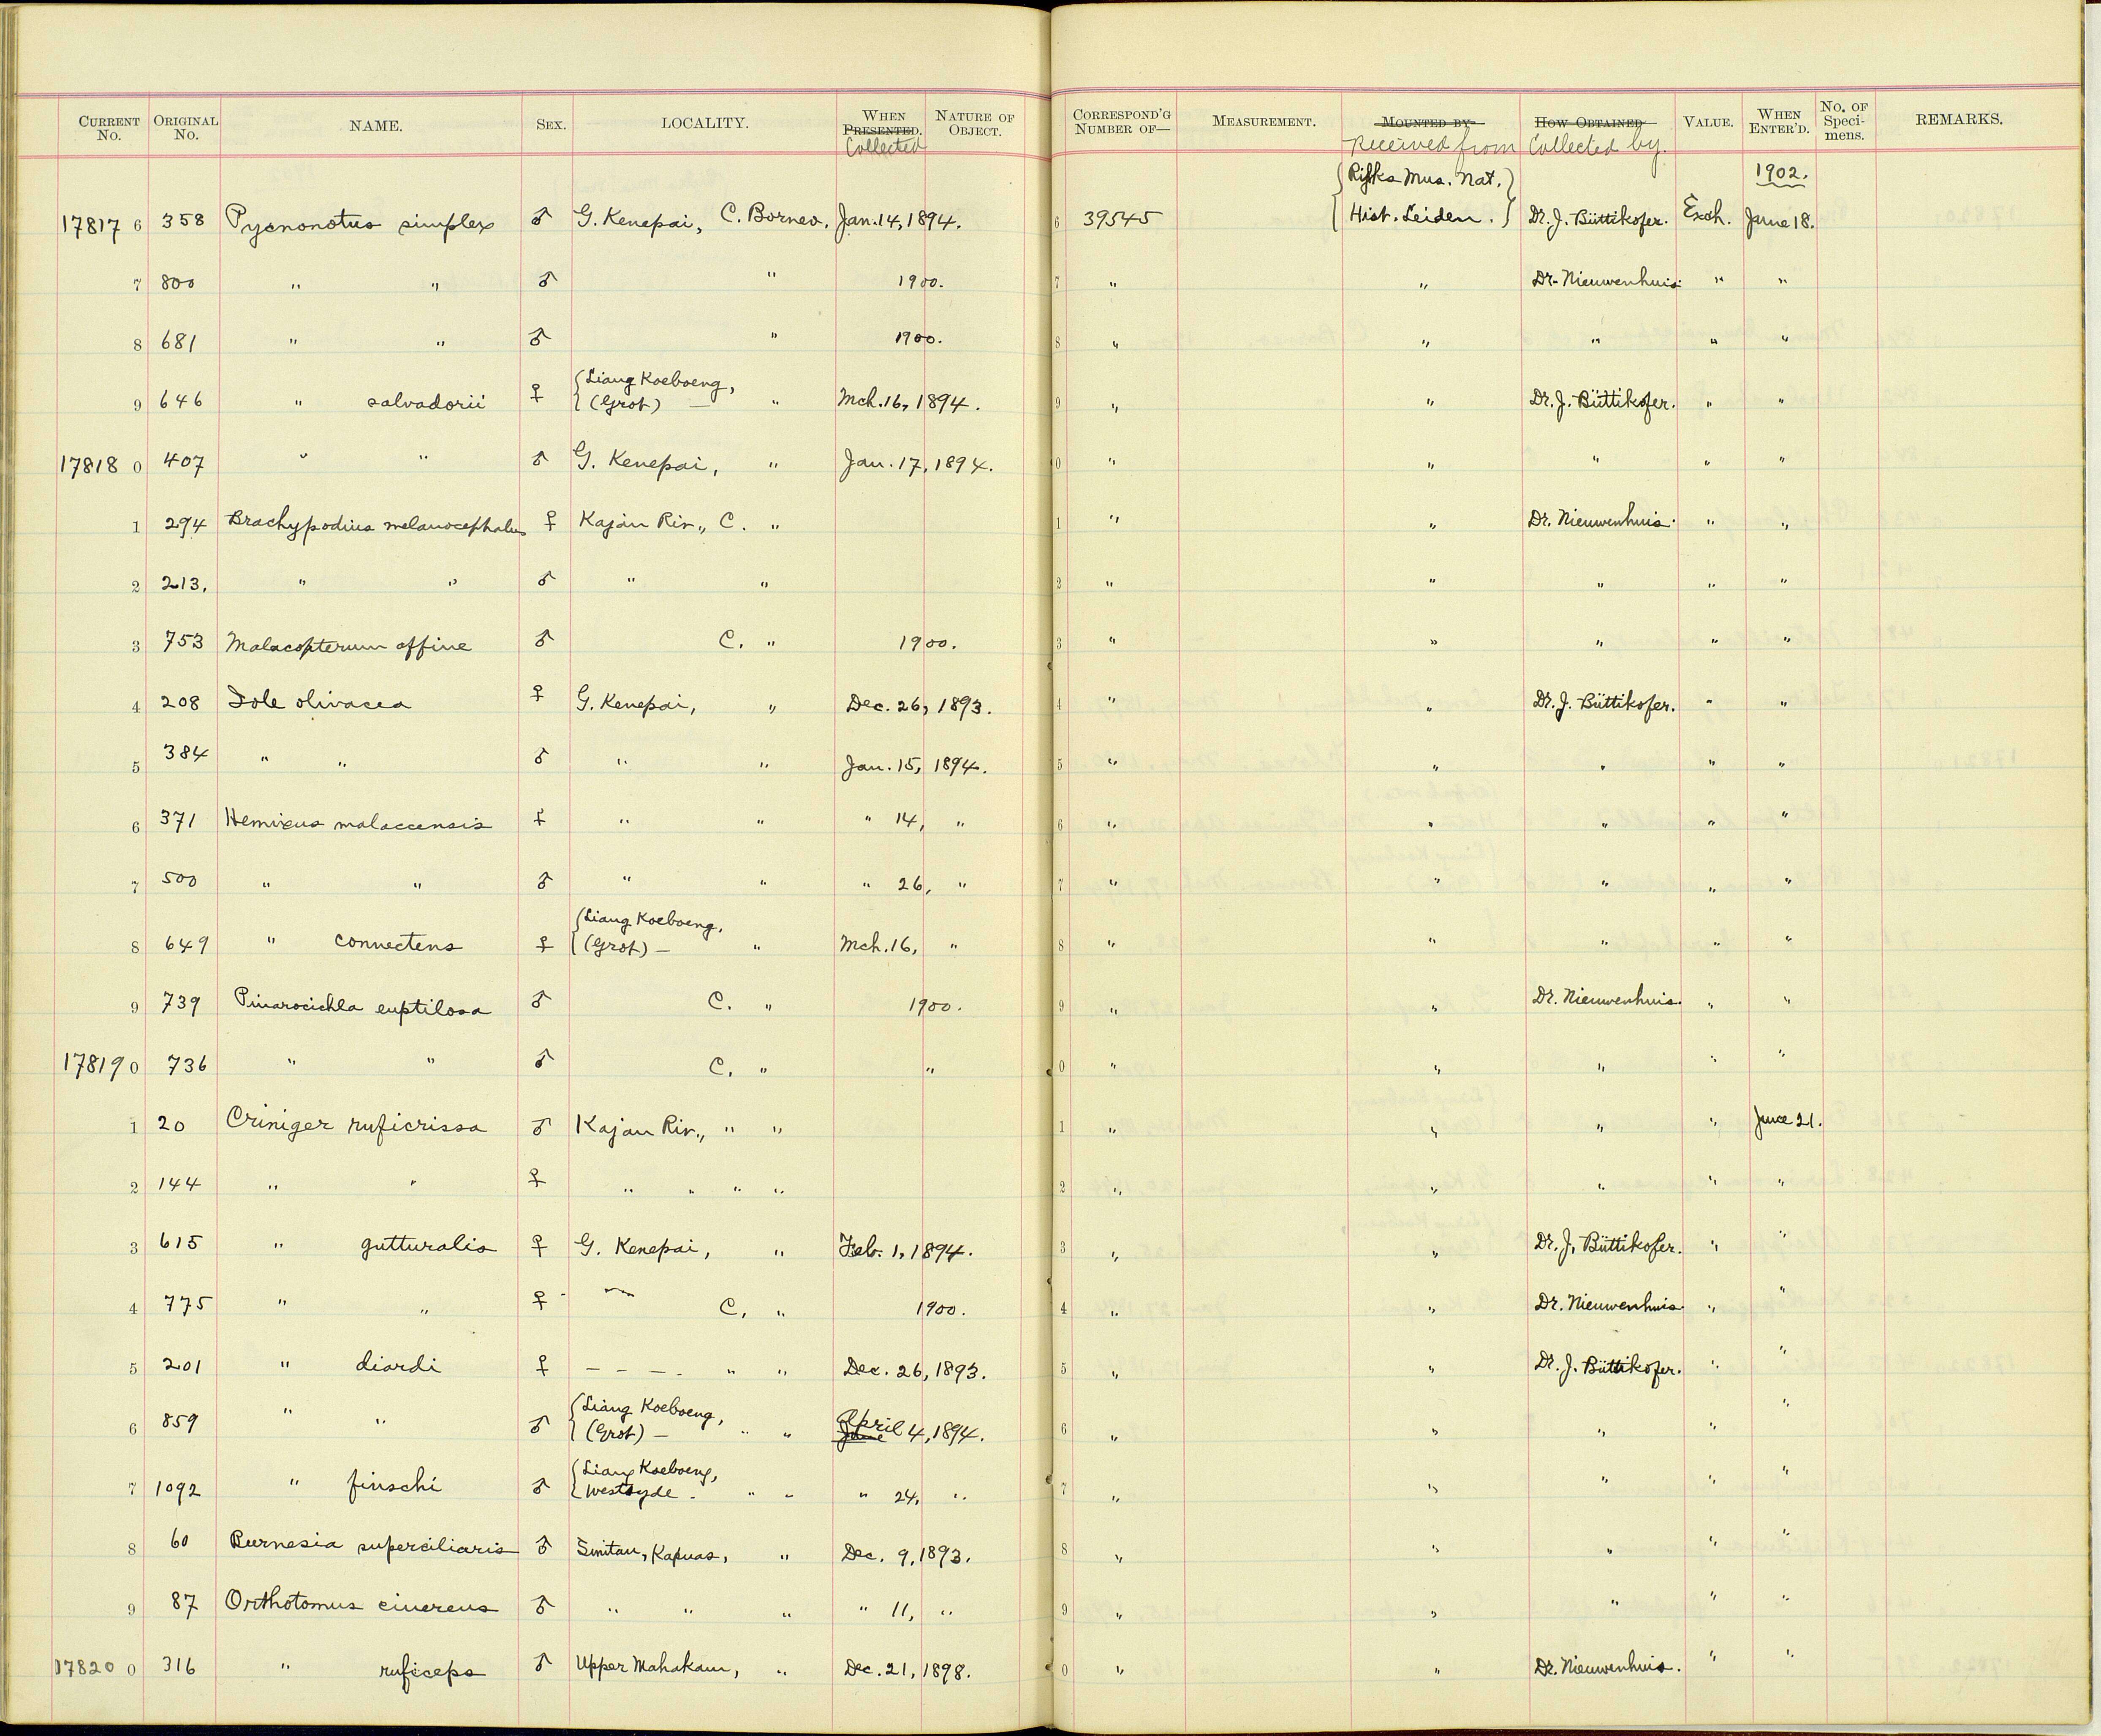 CURRENT No. ORIGINAL No. NAME. SEX. LOCALITY. WHEN PRESENTED. Collected NATURE OF OBJECT. CORRESPOND'G NUMBER OF— MEASUREMENT. MOUNTED BY Received from HOW OBTAINED Collected by. VALUE. WHEN ENTER'D. No. OF Speci-mens. REMARKS.
{Rijks Mus. Nat.} 1902.
17817 6 358 Pycnonotus simplex ♂ G. Kenepai, C. Borneo. Jan. 14, 1894. 6 39545 {Hist. Leiden.} Dr. J. Büttikofer. Exch. June 18.
7 800 " " ♂ " 1900. 7 " " Dr. Nieuwenhuis. " "
8 681 " " ♂ " 1900. 8 " " " " "
{Liang Koeboeng,
9 646 " salvadorii ♀ {(Grot) — " Mch. 16, 1894. 9 " " Dr. J. Büttikofer. " "
17818 0 407 " " ♂ G. Kenepai, " Jan. 17, 1894. 0 " " " " "
1 294 Brachypodius melanocephalus ♀ Kajan Riv., C. " 1 " " Dr. Nieuwenhuis. " "
2 213. " " ♂ " " 2 " " " " "
3 753 Malacopterum affine ♂ C. " 1900. 3 " " " " "
4 208 Iole olivacea ♀ G. Kenepai, " Dec. 26, 1893. 4 " " Dr. J. Büttikofer. " "
5 384 " " ♂ " " Jan. 15, 1894. 5 " " " " "
6 371 Hemixus malaccensis ♀ " " " 14, " 6 " " " " "
7 500 " " ♂ " " " 26, " 7 " " " " "
{Liang Koeboeng,
8 649 " connectens ♀ {(Grot) — " Mch. 16, " 8 " " " " "
9 739 Pinarocichla euptilosa ♂ C. " 1900. 9 " " Dr. Nieuwenhuis. " "
17819 0 736 " " ♂ C. " " 0 " " " " "
1 20 Criniger ruficrissa ♂ Kajan Riv., " " 1 " " " " June 21.
2 144 " " ♀ " " " " 2 " " " " "
3 615 " gutturalis ♀ G. Kenepai, " Feb. 1, 1894. 3 " " Dr. J. Büttikofer. " "
4 775 " " ♀ C. " 1900. 4 " " Dr. Nieuwenhuis. " "
5 201 " diardi ♀ — — — " " Dec. 26, 1893. 5 " " Dr. J. Büttikofer. " "
{Liang Koeboeng, April
6 859 " " ♂ {(Grot) — " " June 4, 1894. 6 " " " " "
{Liang Koeboeng,
7 1092 " finschi ♂ {Westzyde. " " " 24, " 7 " " " " "
8 60 Burnesia superciliaris ♂ Smitau, Kapuas, " Dec. 9, 1893. 8 " " " " "
9 87 Orthotomus cinereus ♂ " " " " 11, " 9 " " " " "
17820 0 316 " ruficeps ♂ Upper Mahakam, " Dec. 21, 1898. 0 " " Dr. Nieuwenhuis. " "